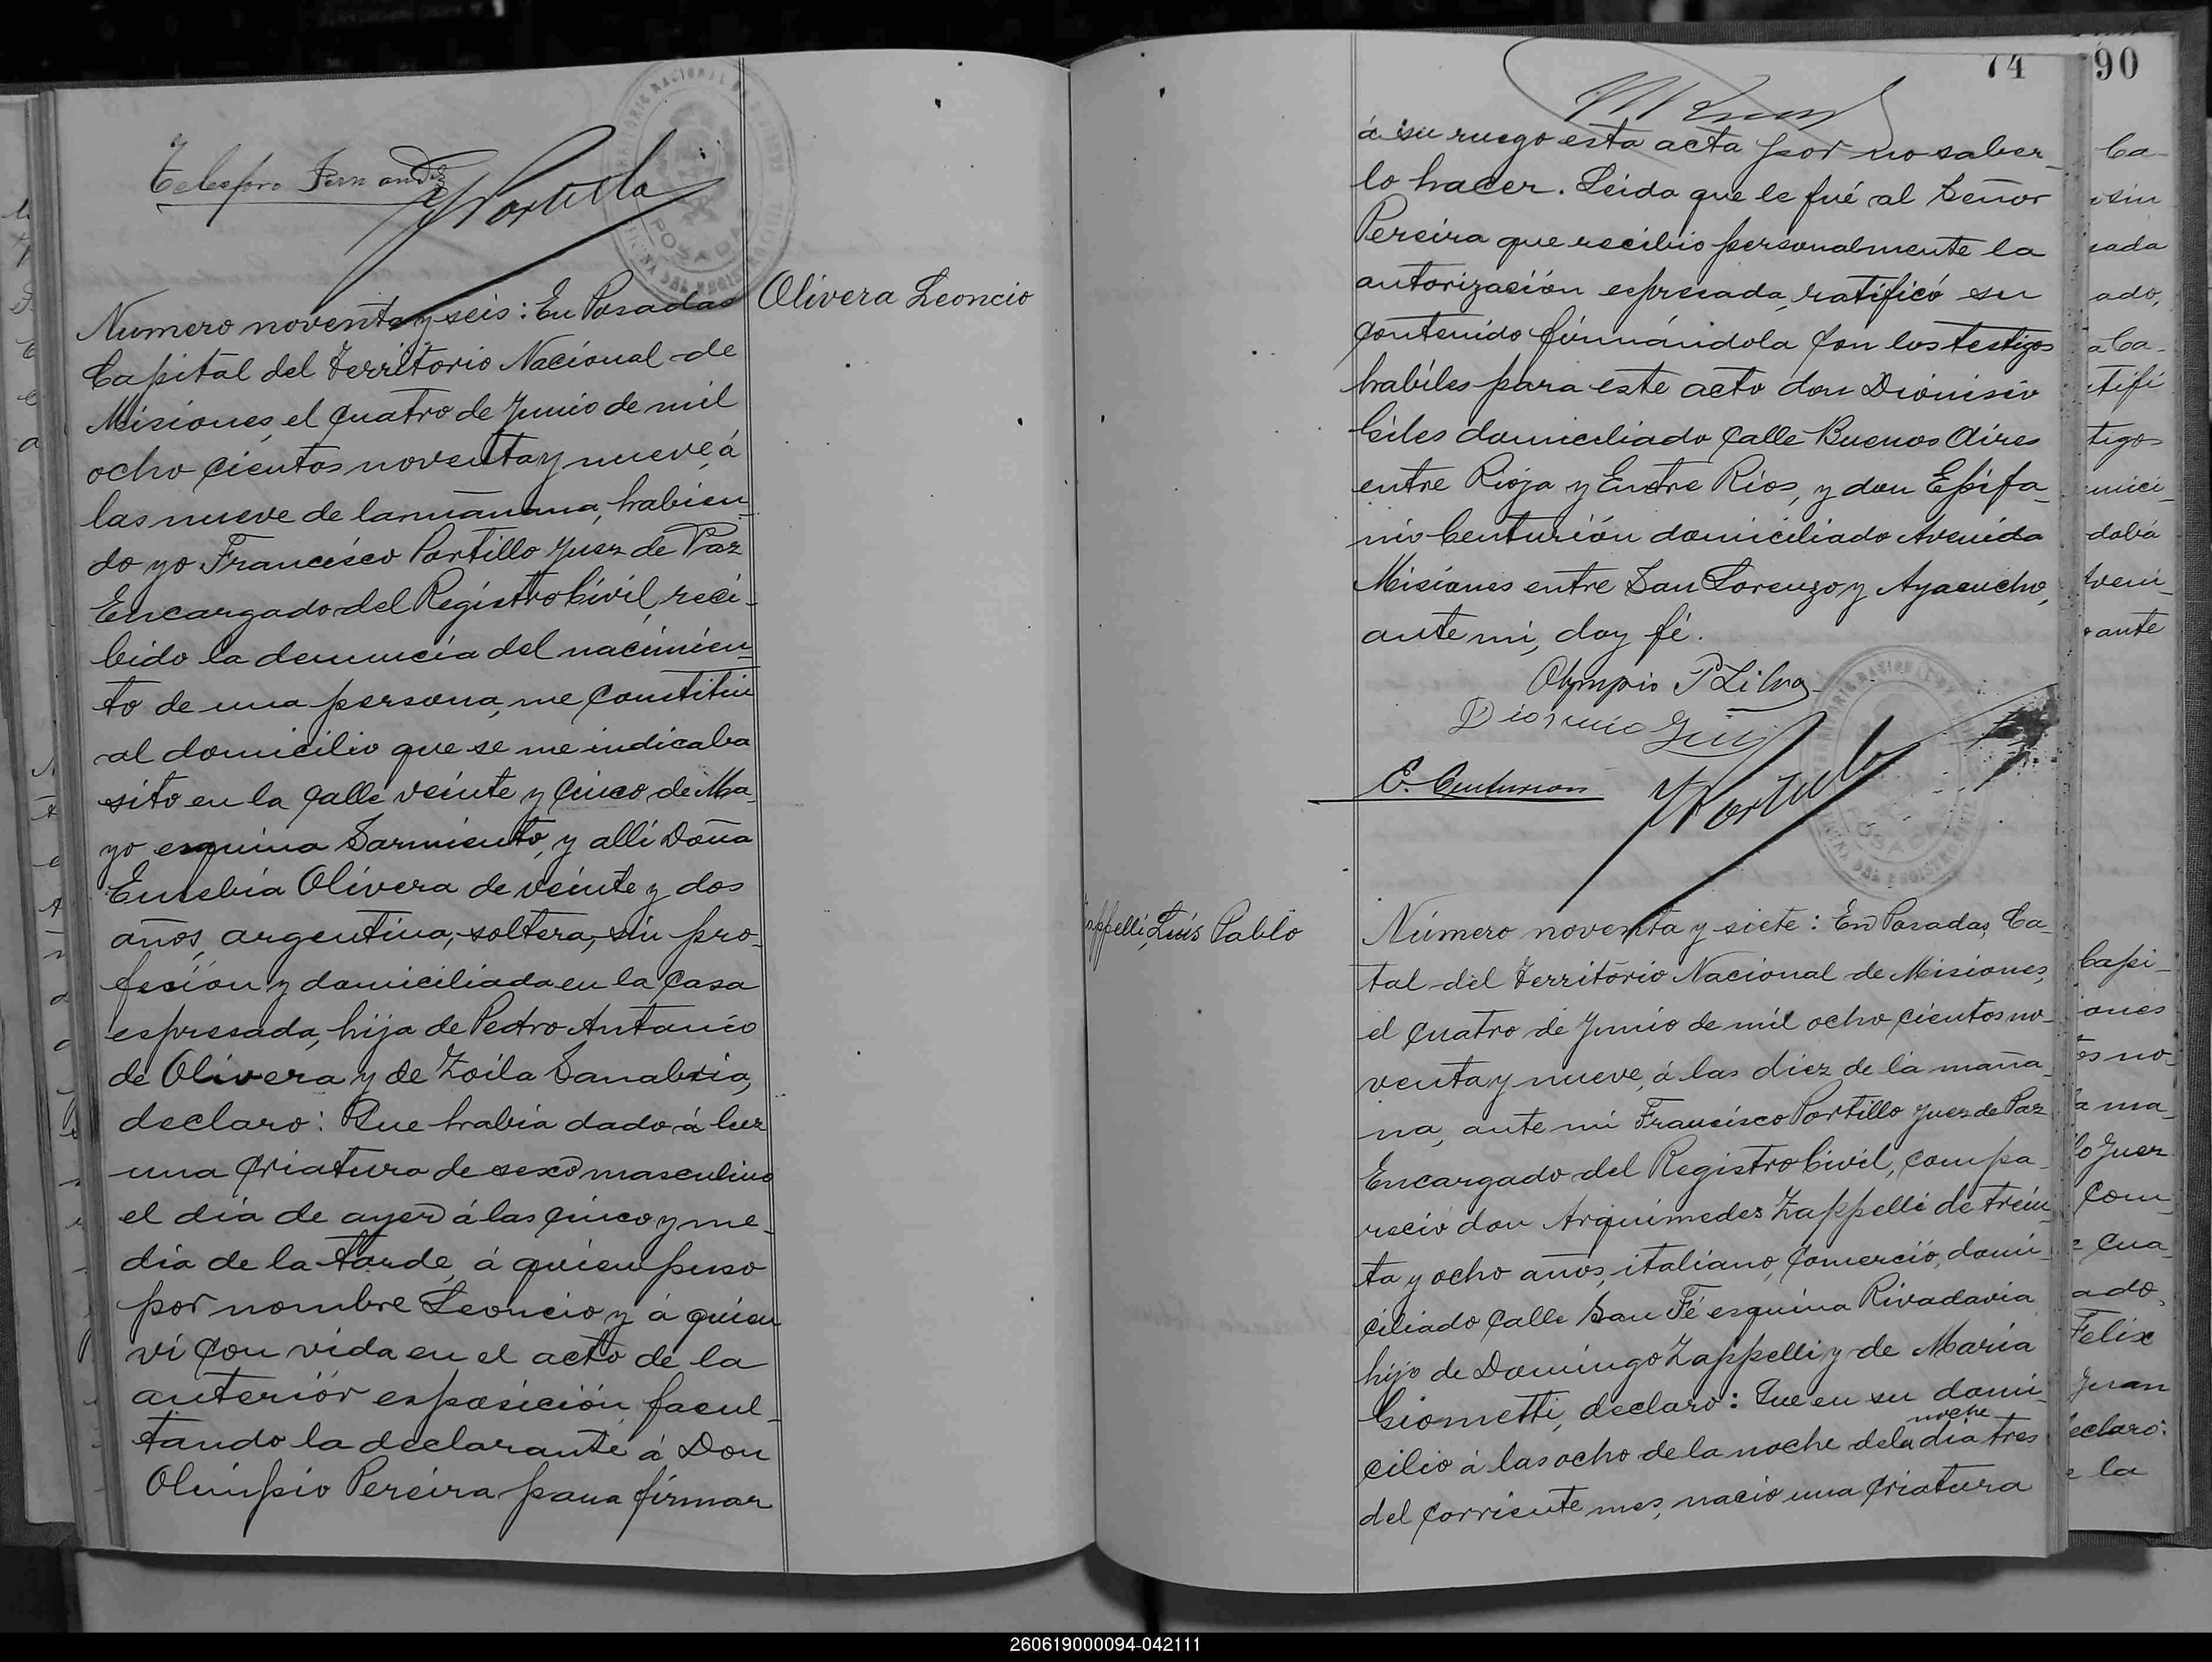 Telesforo Fernandez
FPortillo
Olivera Leoncio
Numero noventa y seis: En Posadas
Capital del Territorio Nacional de
Misiones, el cuatro de Junio de mil
ocho cientos noventa y nueve, á
las nueve de la mañana, habien_
do yo Francisco Portillo Juez de Paz
Encargado del Registro Civil, reci_
bido la denuncia del nacimien_
to de una persona, me constituí
al domicilio que se me indicaba
sito en la calle veinte y cinco de Ma_
yo esquina Sarmiento, y alli Doña
Eusebia Olivera de veinte y dos
años, argentina, soltera, sin pro_
fesión y domiciliada en la casa
espresada, hija de Pedro Antonio
de Olivera y de Zoila Sanabria,
declaro: Que habia dado á luz
una criatura de sexo masculino
el dia de ayer á las cinco y me_
dia de la tarde, á quien puso
por nombre Leoncio y á quien
vi con vida en el acto de la
anterior esposición, facul_
tando la declarante á Don
Olimpio Pereira para firmar
74
á su ruego esta acta por no saber_
lo hacer. Leida que le fué al Señor
Pereira que recibio personalmente la
autorización espresada, ratificó su
contenido firmándola con los testigos
habiles para este acto don Dionisio
Giles domiciliado calle Buenos Aires
entre Rioja y Entre Rios, y don Epifa_
nio Centurión domiciliado Avenida
Misiones entre San Lorenzo y Ayacucho,
ante mi, doy fé.
Olympio P Silva
Dionicio
E. Centurion
FPortillo
Zappelli, Luis Pablo
Número noventa y siete: En Posadas, Ca_
tal del Territorio Nacional de Misiones,
el cuatro de Junio de mil ocho cientos no_
venta y nueve, á las diez de la maña_
na, ante mi Francisco Portillo Juez de Paz
Encargado del Registro Civil, compa_
reció don Arquimedes Zappelli de trein_
ta y ocho años, italiano, comercio, domi_
ciliado calle San Fé esquina Rivadavia
hijo de Domingo Zappelli y de Maria
Giometti, declaro: Que en su domi_
noche
cilio á las ocho de la noche dela dia tres
del corriente mes, nacio una criatura
90
Ca_
sin
sada
ado,
a Ca_
tifi
tigos
mici_
daba
veni_
ante
Capi_
iones
no_
ma_
Juez
Com_
Cua_
ado,
Felix
Juan
eclaro:
la
POSADAS
260619000094-042111